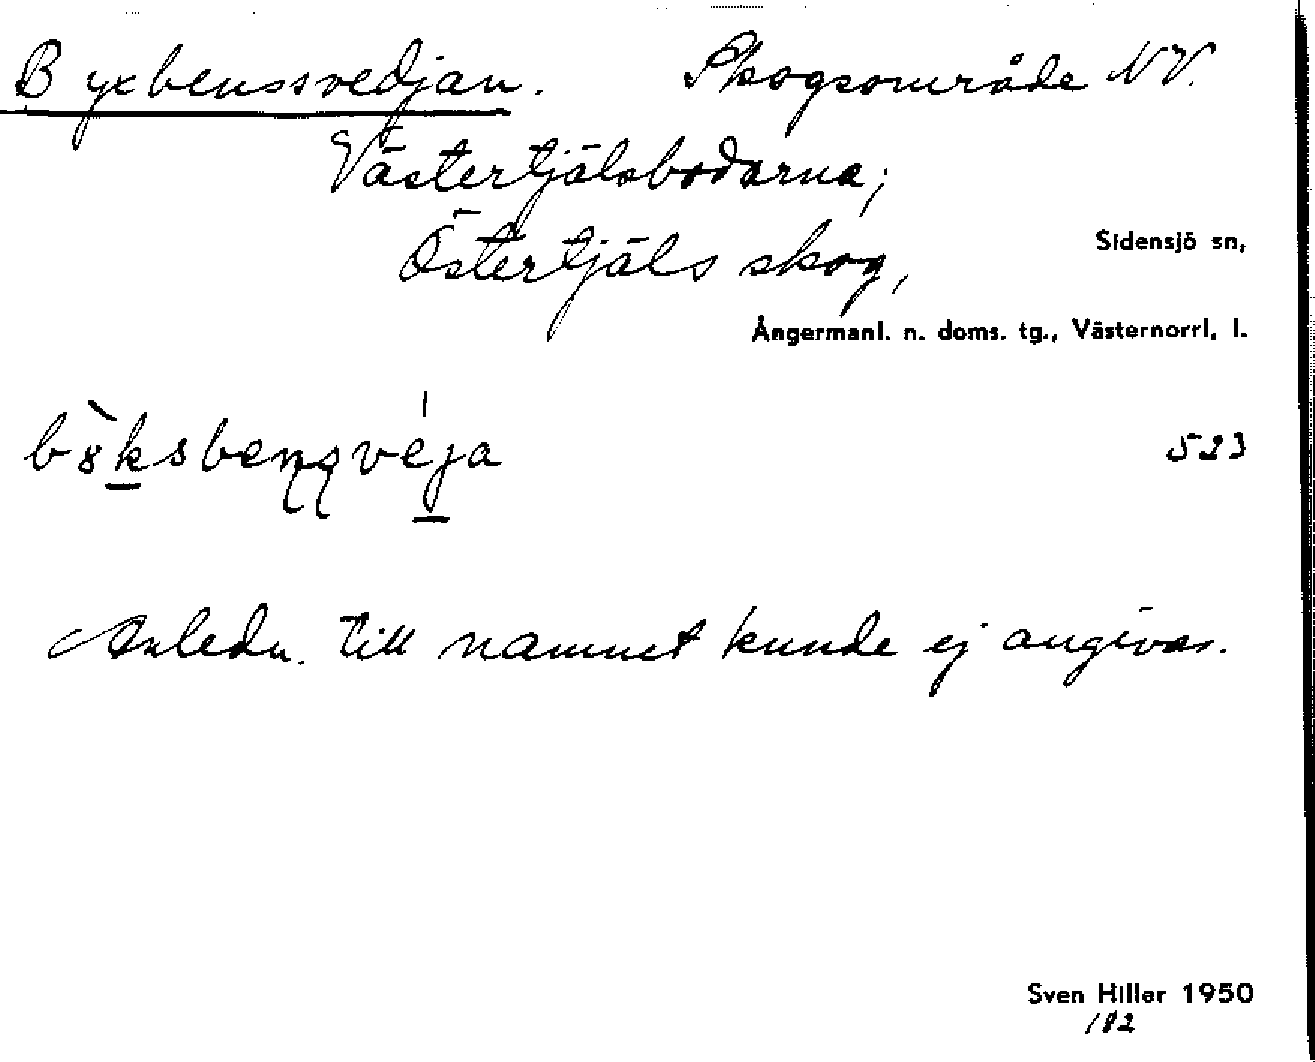 Byxbenssvedjan. Skogsområde NV.
Västertjälsbodarna;
Östertjäls skog,
Sidensjö sn,
Ångermanl. n. doms. tg., Västernorrl. l.
523
Anledn. till namnet kunde ej angivas.
Sven Hiller 1950
182